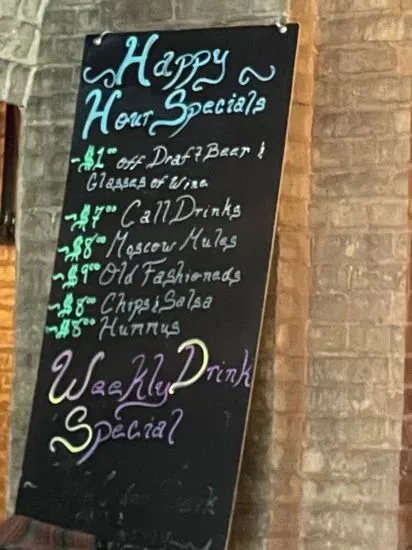 ~Happy~
Hour Specials
-$1.00 off Draft Beer &
Glasses of Wine
-$7.00 Call Drinks
-$8.00 Moscow Mules
-$9.00 Old Fashioneds
-$8.00 Chips & Salsa
-$8.00 Hummus
Weekly Drink
Special